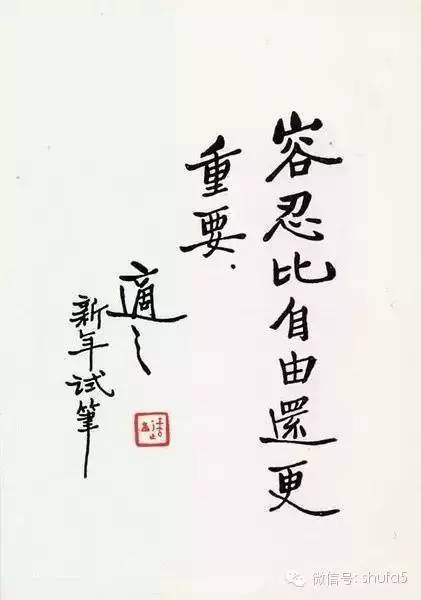 容忍比自由還更
重要.
適之
新年试筆
微信号: shufa5